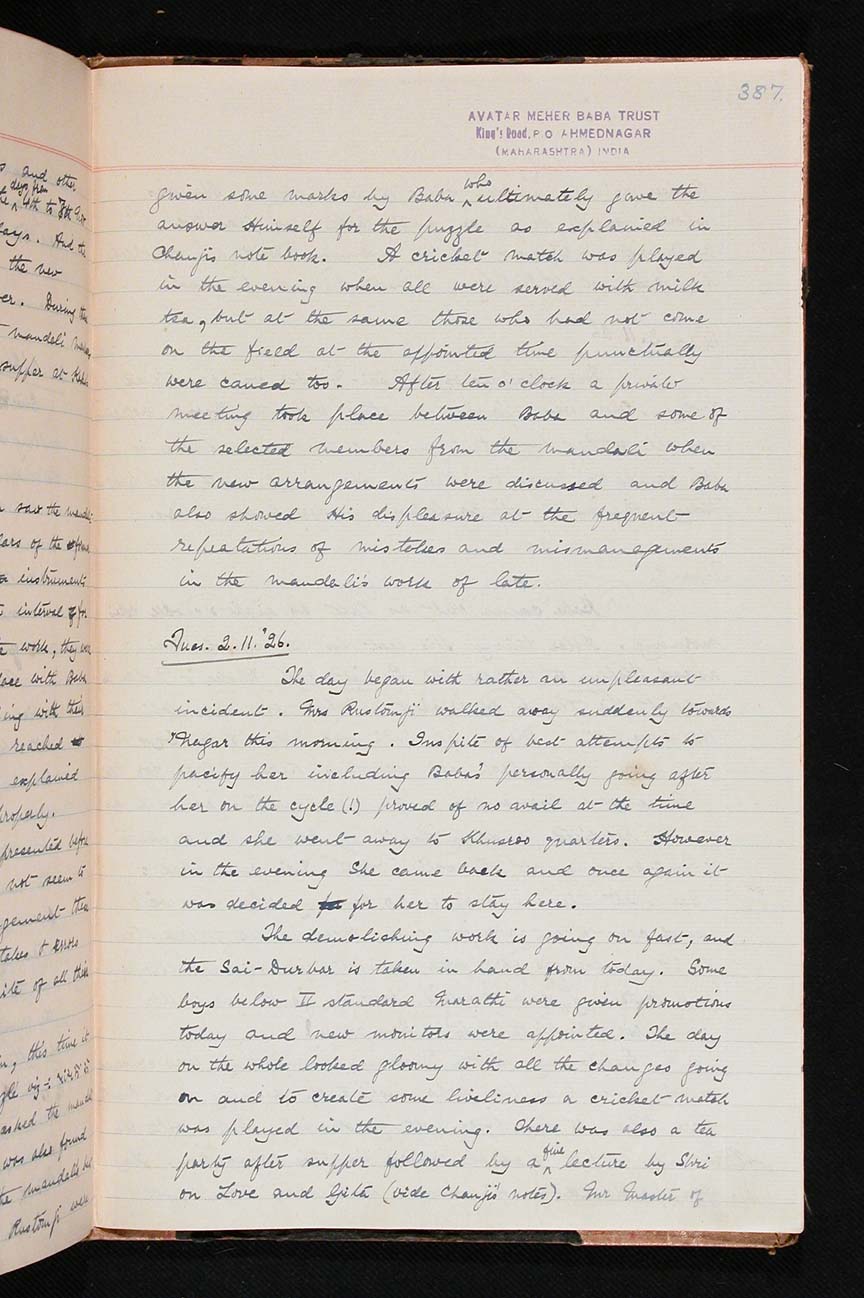 387.
AVATAR MEHER BABA TRUST
King's Road, P.O AHMEDNAGAR
(MAHARASHTRA) INDIA
given some marks by Baba who ultimately gave the
answer Himself for the puzzle as explained in
Chanjis note book. A cricket match was played
in the evening when all were served with milk
tea, but at the same those who had not come
on the field at the appointed time punctually
were caned too. After ten o'clock a private
meeting took place between Baba and some of
the selected members from the mandali when
the new arrangements were discussed and Baba
also showed His displeasure at the frequent
repeatations of mistakes and mismanagements
in the mandali's work of late.
Tues. 2.11.'26.
The day began with rather an unpleasant
incident. Mrs Rustomji walked away suddenly towards
'Nagar this morning. Inspite of best attempts to
pacify her including Baba's personally going after
her on the cycle (!) proved of no avail at the time
and she went away to Khusroo quarters. However
in the evening She came back and once again it
was decided for her to stay here.
The demolishing work is going on fast, and
the Sai-Durbar is taken in hand from today. Some
boys below II standard Marathi were given promotions
today and new monitors were appointed. The day
on the whole looked gloomy with all the changes going
on and to create some liveliness a cricket match
was played in the evening. There was also a tea
party after supper followed by a fine lecture by Shri
on Love and Gita (vide Chanji's notes). Mr Master of
and other
days from
4th to 8th
days. And the
the new
During the
mandali
supper at
saw the mandali
of the
instruments
interval for
work, they were
with Baba
with their
reached
explained
properly.
presented before
not seem to
& Errors
of all this
this time it
asked the
was also found
the mandali
Rustomji were